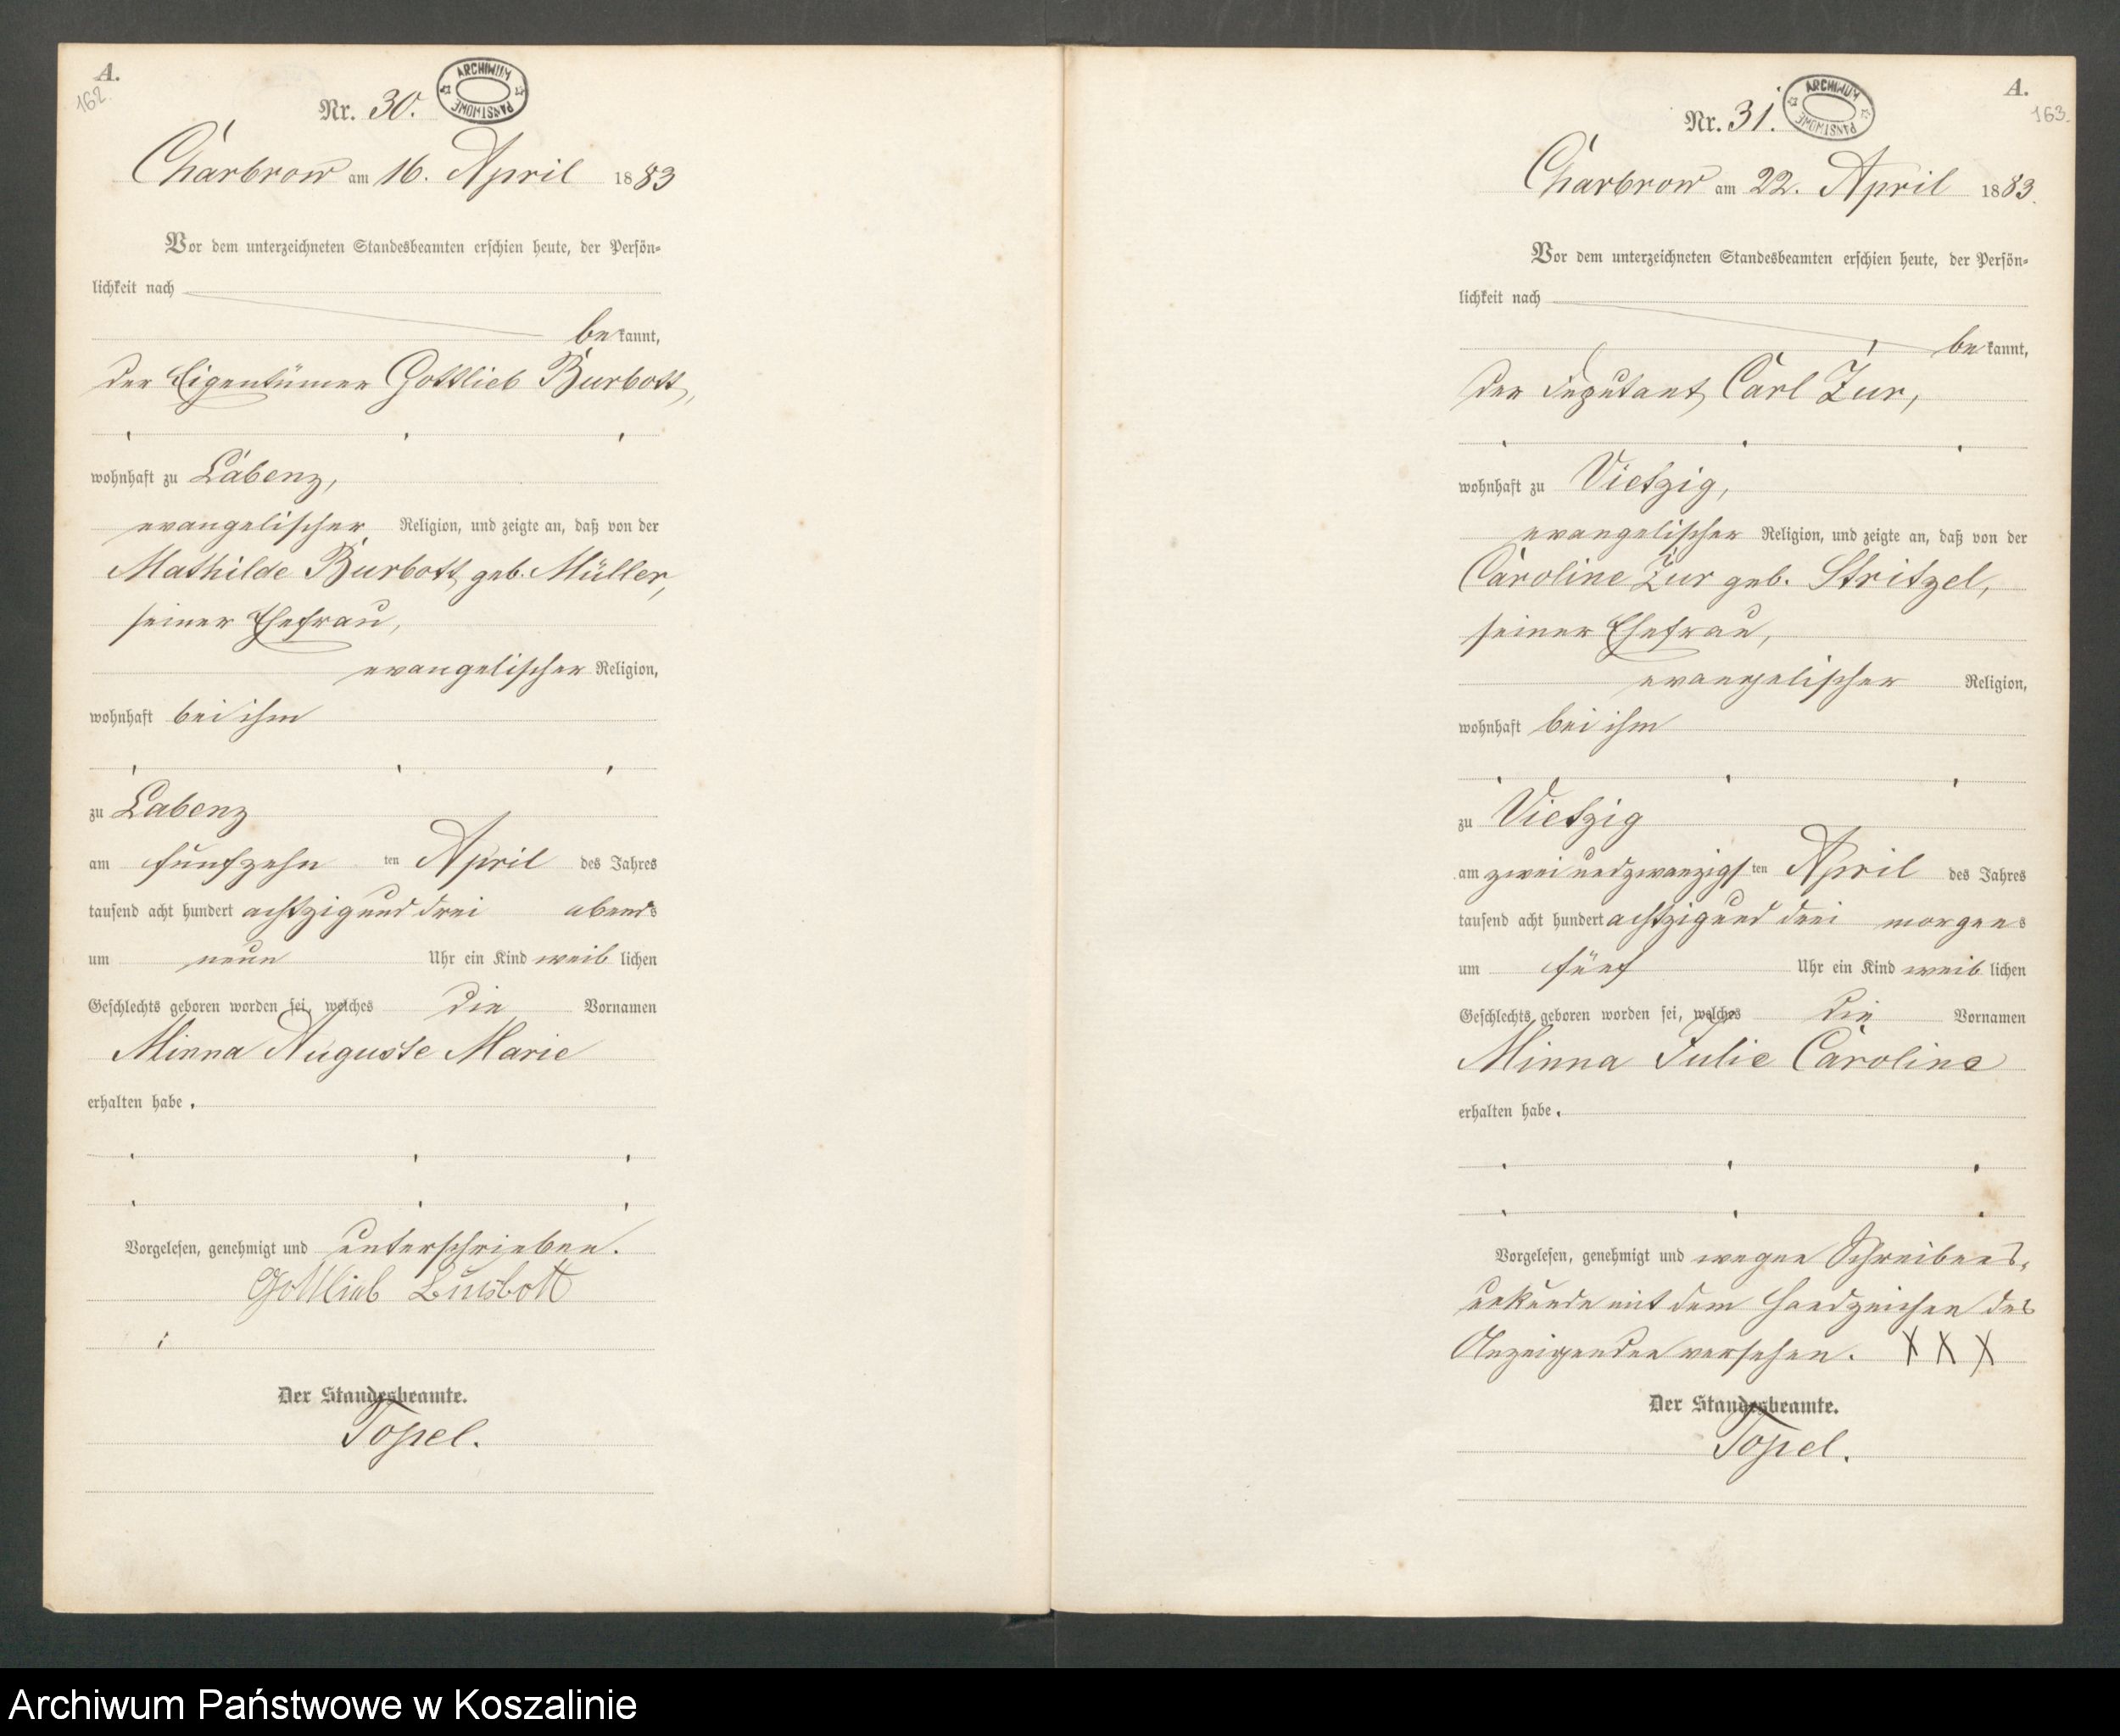 A.
162.
Nr. 30.
ARCHIWUM PAŃSTWOWE
Charbrow am 16. April 1883
Vor dem unterzeichneten Standesbeamten erschien heute, der Persön-
lichkeit nach
bekannt,
der Eigentümer Gottlieb Burbott,
wohnhaft zu Labenz,
evangelischer Religion, und zeigte an, daß von der
Mathilde Burbott geb. Müller,
seiner Ehefrau,
evangelischer Religion,
wohnhaft bei ihm
zu Labenz
am fünfzehn ten April des Jahres
tausend acht hundert achtzig und drei abends
um neun Uhr ein Kind weiblichen
Geschlechts geboren worden sei, welches die Vornamen
Minna Auguste Marie
erhalten habe.
Vorgelesen, genehmigt und unterschrieben.
Gottlieb Burbott
Der Standesbeamte.
Topel.
A.
163.
Nr. 31.
ARCHIWUM PAŃSTWOWE
Charbrow am 22. April 1883.
Vor dem unterzeichneten Standesbeamten erschien heute, der Persön-
lichkeit nach
bekannt,
der Deputant Carl Zur,
wohnhaft zu Vietzig,
evangelischer Religion, und zeigte an, daß von der
Caroline Zur geb. Stritzel,
seiner Ehefrau,
evangelischer Religion,
wohnhaft bei ihm
zu Vietzig
am zwei und zwanzigsten April des Jahres
tausend acht hundert achtzig und drei morgens
um fünf Uhr ein Kind weiblichen
Geschlechts geboren worden sei, welches die Vornamen
Minna Julie Caroline
erhalten habe.
Vorgelesen, genehmigt und wegen Schreibens-
unkunde mit dem Handzeichen des
Anzeigenden versehen. X X X
Der Standesbeamte.
Topel.
Archiwum Państwowe w Koszalinie